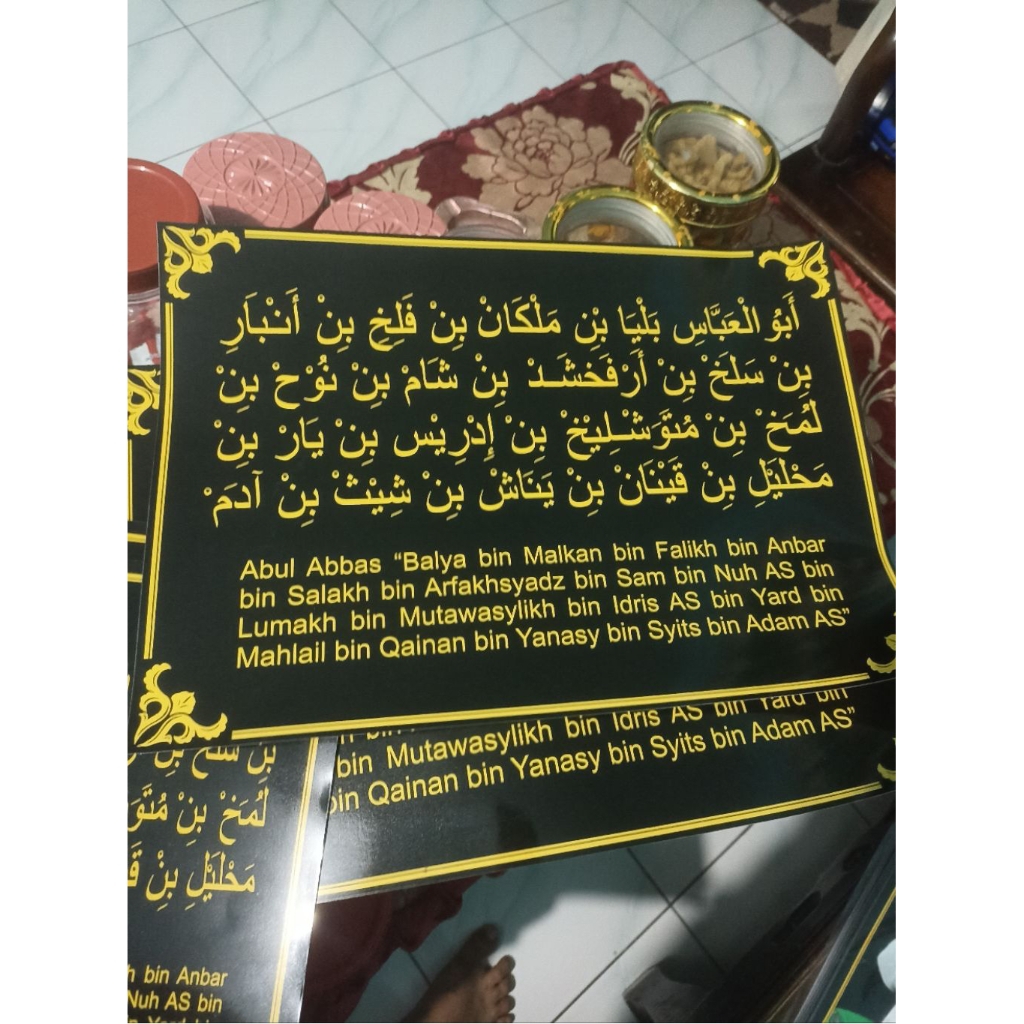 أَبُو الْعَبَّاسِ بَلْيَا بِنْ مَلْكَانْ بِنْ فَلِخِ بِنْ أَنْبَارِ
بِنْ سَلَخْ بِنْ أَرْفَخَشَدْ بِنْ شَامْ بِنْ نُوْحْ بِنْ
لَُمَخْ بِنْ مُتَوَشْلِيْخْ بِنْ إِدْرِيْس بِنْ يَارْ بِنْ
مَحْلَيْلِ بِنْ قَيْنَانْ بِنْ يَنَاشْ بِنْ شِيْثْ بِنْ آدَمَْ
Abul Abbas “Balya bin Malkan bin Falikh bin Anbar
bin Salakh bin Arfakhsyadz bin Sam bin Nuh AS bin
Lumakh bin Mutawasylikh bin Idris AS bin Yard bin
Mahlail bin Qainan bin Yanasy bin Syits bin Adam AS”
bin Mutawasylikh bin Idris AS bin Yard bin
bin Qainan bin Yanasy bin Syits bin Adam AS”
بِنْ سَلَخْ بِنْ
لَُمَخْ بِنْ
مَحْلَيْلِ بِنْ
bin Anbar
Nuh AS bin